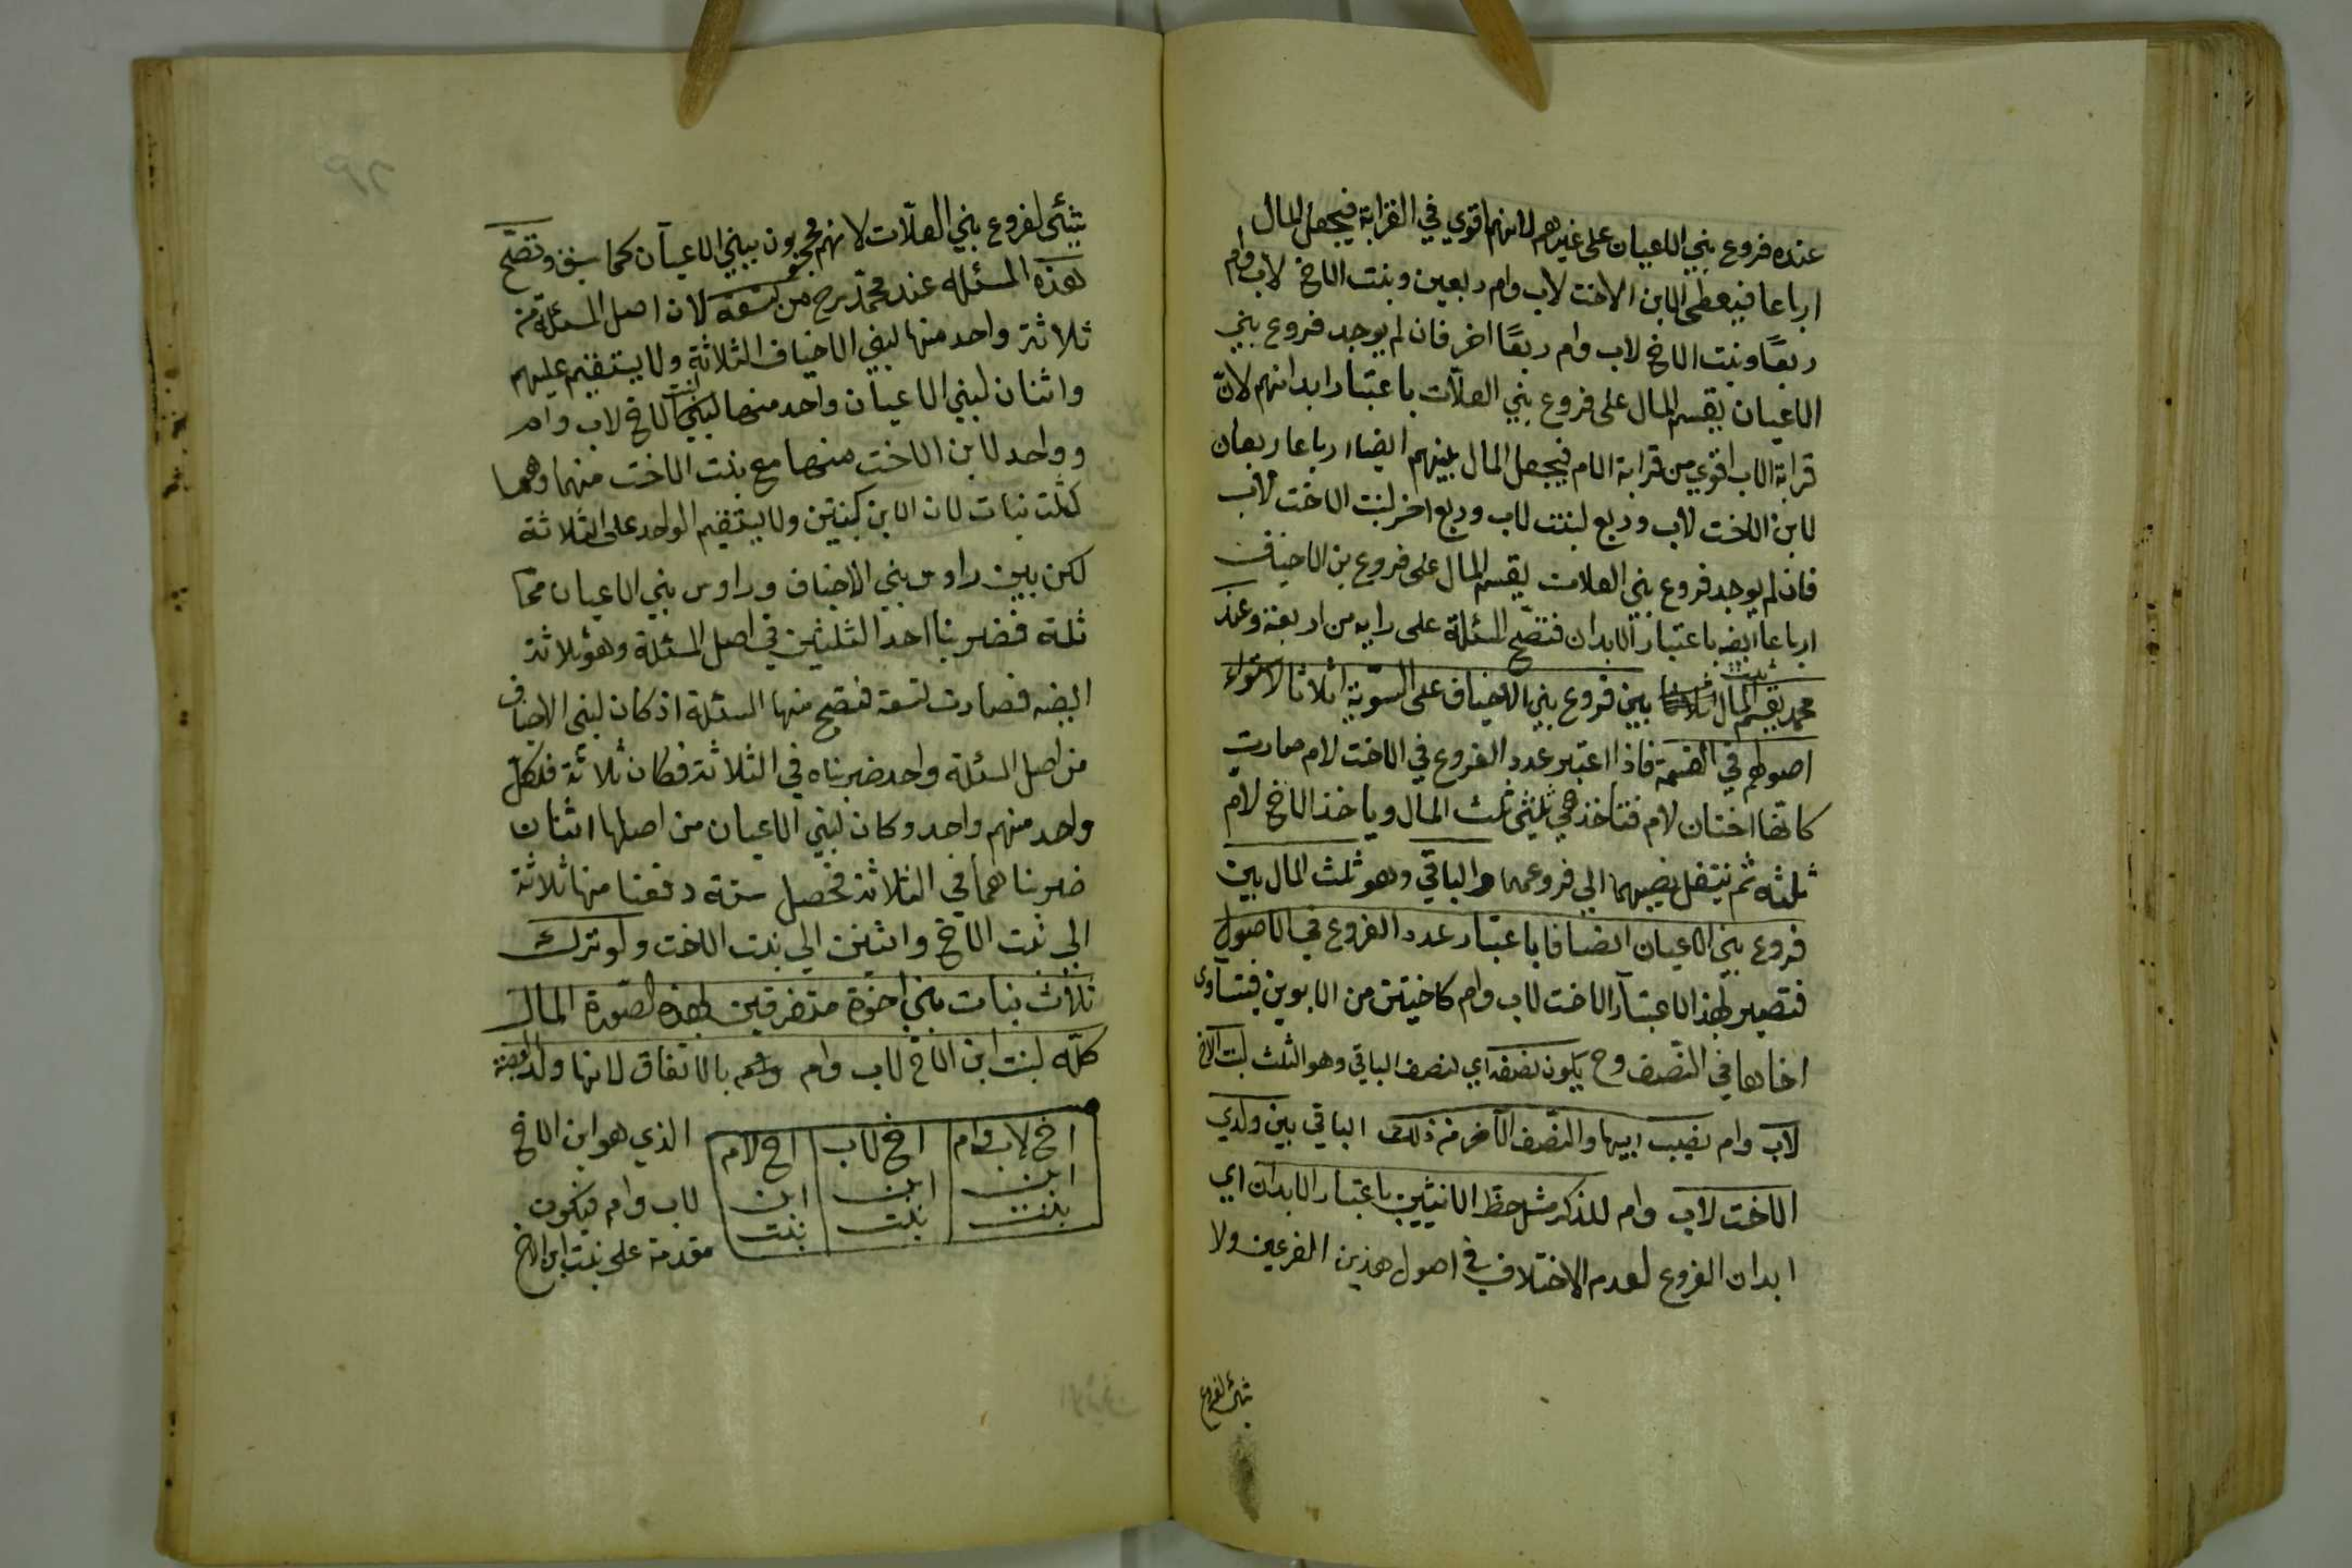 عنده فروع بني الاعيان على غيرهم لانهم اقوي في القرابة فيجعل المال
ارباعا فيعطى لابن الاخت لاب وام ربعين وبنت الاخ لاب وام
ربعًا وبنت الاخ لاب وام ربعًا اخر فان لم يوجد فروع بني
الاعيان يقسم المال على فروع بني العلّات باعتبار ابدانهم لانّ
قرابة الاب اقوي من قرابة الام فيجعل المال بينهم ايضا ارباعا ربعان
لابن الاخت لاب وربع لبنت لاب وربع اخر لبنت الاخت لاب
فان لم يوجد فروع بني العلات يقسم المال على فروع بن الاخياف
ارباعا ايضه باعتبار الابدان فتصّح المسئلة على رايه من اربعة وعند
محمد يقسم المال ثلث بين فروع بني الاخياف على السّويّة اثلاثا لاستواء
اصولهم في القسمة فاذا اعتبر عدد الفروع في الاخت لام صارت
كانها اختان لام فتاخذ هي ثلثي ثلث المال وياخذ الاخ لام
ثلثه ثم ينتقل نصيبهما الي فروعهما والباقي وهو ثلث المال بين
فروع بني الاعيان انصافا باعتبار عدد الفروع في الاصول
فتصير بهذا الاعتبار الاخت لاب وام كاختين من الابوين فتساوى
اخاها في النّصف وح يكون نصفه اي نصف الباقي وهو الثلث لبنت الاخ
لاب وام نصيب ابيها والنّصف الآخر من ذلك الباقي بين ولدي
الاخت لاب وام للذكر مثل حظ الانثيين باعتبار الابدان اي
ابدان الفروع لعدم الاختلاف في اصول هذين الفرعين ولا
شئ لفروع
شئ لفروع بني العلّات لانهم محجوبون ببني الاعيان كما سبق وتصّح
هذه المسئله عند محمّد رح من تسعة لان اصل المسئلة من
ثلاثة واحد منها لبني الاخياف الثلاثة ولا يستقيم عليهم
واثنان لبني الاعيان واحد منهما لبنت الاخ لاب وام
وواحد لابن الاخت منهما مع بنت الاخت منهما وهما
كثلث بنات لان الابن كبنتين ولا يستقيم الواحد على الثلاثة
لكن بين راوس بني الاخياف وراوس بني الاعيان
ثلة فضربنا احد الثلثين في اصل المسئلة وهو ثلاثة
ايضه فصارت تسعة فتصح منها المسئلة اذ كان لبني الاخياف
من اصل المسئلة واحد ضربناه في الثلاثة فكان ثلاثة فلكلّ
واحد منهم واحد وكان لبني الاعيان من اصلها اثنان
ضربناهما في الثلاثة فحصل ستة دفعنا منها ثلاثة
الي بنت الاخ واثنين الي بنت الاخت ولو ترك
ثلاث بنات بني اخوة متفرقين بهذه الصّورة المال
كلّه لبنت ابن الاخ لاب وام بالاتفاق لانها ولد العصبة
الذي هو ابن الاخ
لاب وام فيكون
مقدمة على بنت ابن الاخ
اخ لاب وام اخ لاب اخ لام
ابن ابن ابن
بنت بنت بنت